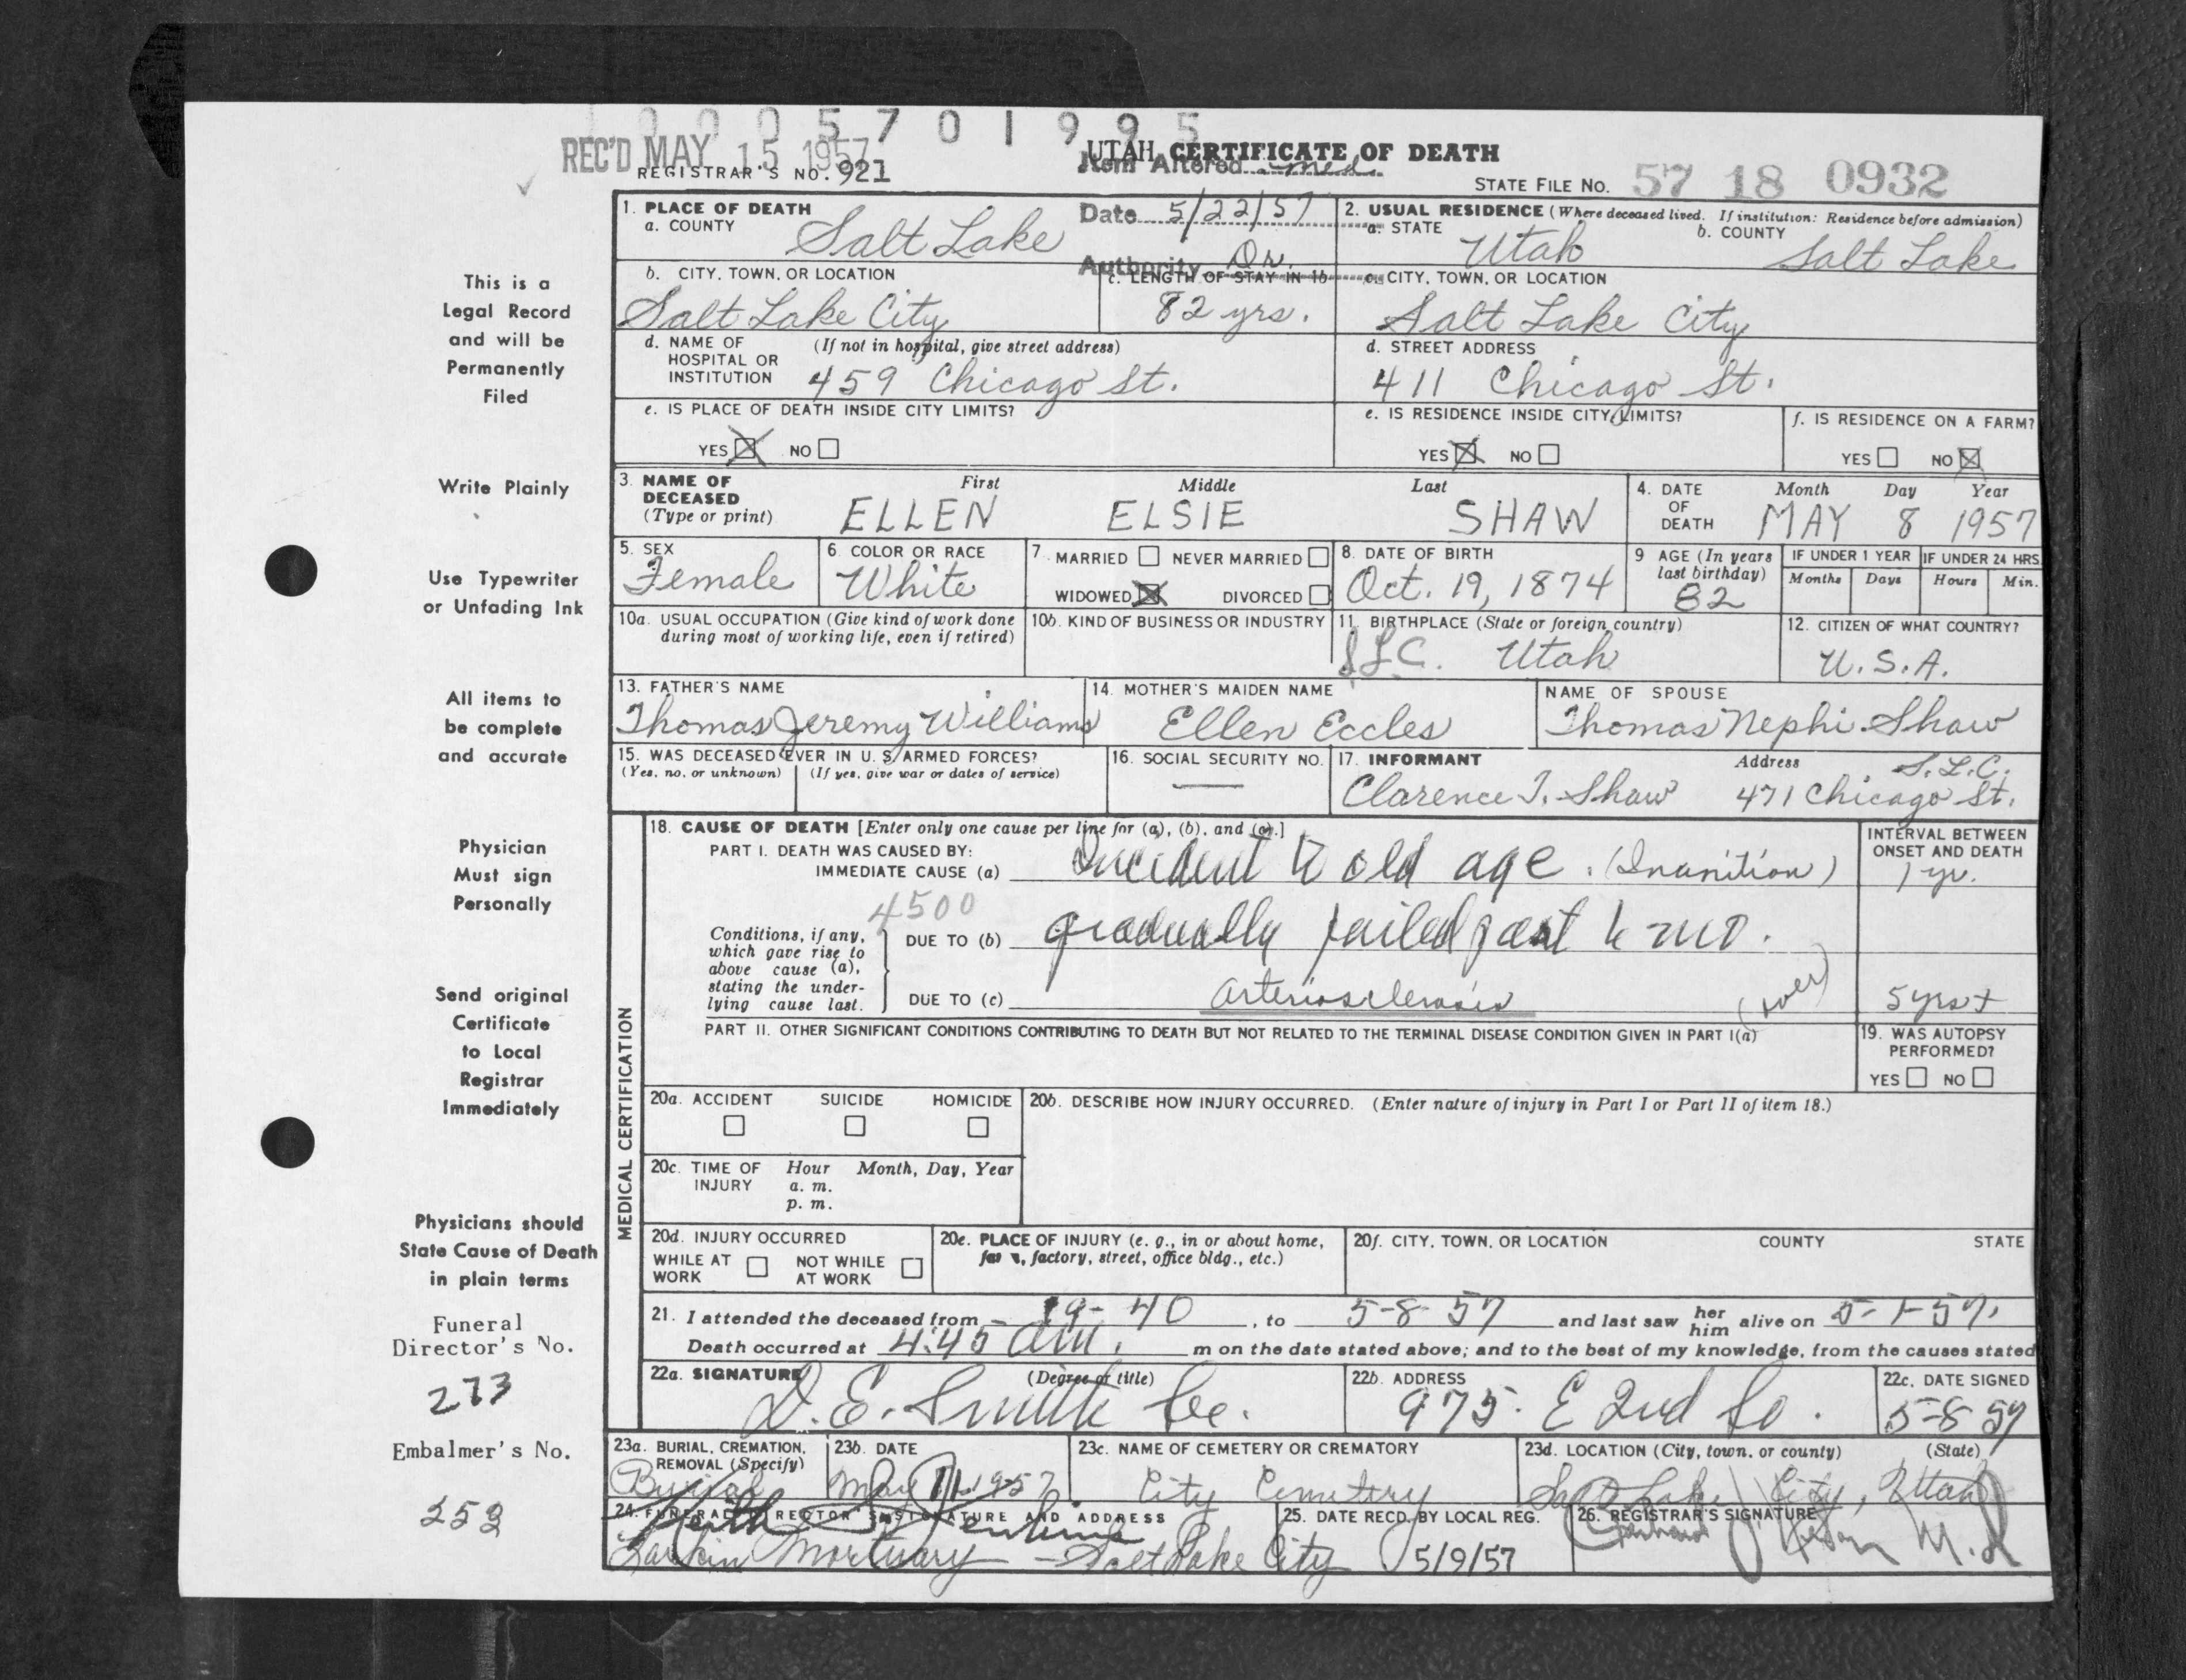 1 0 0 0 5 7 0 1 9 9 5
REC'D MAY 15 1957
UTAH CERTIFICATE OF DEATH
REGISTRAR'S NO. 921
Item Altered med.
STATE FILE No. 57 18 0932
Date 5/22/57
Authority Dr.
1. PLACE OF DEATH
a. COUNTY Salt Lake
2. USUAL RESIDENCE (Where deceased lived. If institution: Residence before admission)
a. STATE Utah b. COUNTY Salt Lake
b. CITY, TOWN, OR LOCATION Salt Lake City
c. LENGTH OF STAY IN 1b 82 yrs.
c. CITY, TOWN, OR LOCATION Salt Lake City
d. NAME OF HOSPITAL OR INSTITUTION (If not in hospital, give street address) 459 Chicago St.
d. STREET ADDRESS 411 Chicago St.
e. IS PLACE OF DEATH INSIDE CITY LIMITS?
YES NO
e. IS RESIDENCE INSIDE CITY LIMITS?
YES NO
f. IS RESIDENCE ON A FARM?
YES NO
3. NAME OF DECEASED (Type or print)
First Middle Last
ELLEN ELSIE SHAW
4. DATE OF DEATH
Month Day Year
MAY 8 1957
5. SEX Female
6. COLOR OR RACE White
7. MARRIED NEVER MARRIED
WIDOWED DIVORCED
8. DATE OF BIRTH Oct. 19, 1874
9 AGE (In years last birthday) 82
IF UNDER 1 YEAR
Months Days
IF UNDER 24 HRS.
Hours Min.
10a. USUAL OCCUPATION (Give kind of work done during most of working life, even if retired)
10b. KIND OF BUSINESS OR INDUSTRY
11. BIRTHPLACE (State or foreign country)
SLC. Utah
12. CITIZEN OF WHAT COUNTRY?
U.S.A.
13. FATHER'S NAME
Thomas Jeremy Williams
14. MOTHER'S MAIDEN NAME
Ellen Eccles
NAME OF SPOUSE
Thomas Nephi Shaw
15. WAS DECEASED EVER IN U. S. ARMED FORCES?
(Yes, no, or unknown) (If yes, give war or dates of service)
16. SOCIAL SECURITY NO.
—
17. INFORMANT Address
Clarence T. Shaw 471 Chicago St. S.L.C.
MEDICAL CERTIFICATION
18. CAUSE OF DEATH [Enter only one cause per line for (a), (b), and (c).]
PART I. DEATH WAS CAUSED BY:
IMMEDIATE CAUSE (a) Incident to old age. (Inanition)
INTERVAL BETWEEN ONSET AND DEATH
1 yr.
4500
Conditions, if any, which gave rise to above cause (a), stating the underlying cause last.
DUE TO (b) gradually failed past 6 mo.
DUE TO (c) arteriosclerosis (over) 5 yrs +
PART II. OTHER SIGNIFICANT CONDITIONS CONTRIBUTING TO DEATH BUT NOT RELATED TO THE TERMINAL DISEASE CONDITION GIVEN IN PART I(a)
19. WAS AUTOPSY PERFORMED?
YES NO
20a. ACCIDENT SUICIDE HOMICIDE
20b. DESCRIBE HOW INJURY OCCURRED. (Enter nature of injury in Part I or Part II of item 18.)
20c. TIME OF INJURY Hour Month, Day, Year
a. m.
p. m.
20d. INJURY OCCURRED
WHILE AT WORK NOT WHILE AT WORK
20e. PLACE OF INJURY (e. g., in or about home, farm, factory, street, office bldg., etc.)
20f. CITY, TOWN, OR LOCATION COUNTY STATE
21. I attended the deceased from 19-40, to 5-8-57 and last saw her him alive on 5-1-57.
Death occurred at 4:45 am. m on the date stated above; and to the best of my knowledge, from the causes stated
22a. SIGNATURE (Degree or title)
D. E. Smith
22b. ADDRESS
975. E 2nd So.
22c. DATE SIGNED
5-8 57
23a. BURIAL, CREMATION, REMOVAL (Specify)
Burial
23b. DATE
May 11 1957
23c. NAME OF CEMETERY OR CREMATORY
City Cemetery
23d. LOCATION (City, town, or county) (State)
Salt Lake City, Utah
24. FUNERAL DIRECTOR'S SIGNATURE AND ADDRESS
Keith
Larkin Mortuary - Salt Lake City
25. DATE RECD. BY LOCAL REG.
5/9/57
26. REGISTRAR'S SIGNATURE
M.D.
This is a
Legal Record
and will be
Permanently
Filed
Write Plainly
Use Typewriter
or Unfading Ink
All items to
be complete
and accurate
Physician
Must sign
Personally
Send original
Certificate
to Local
Registrar
Immediately
Physicians should
State Cause of Death
in plain terms
Funeral
Director's No.
273
Embalmer's No.
252